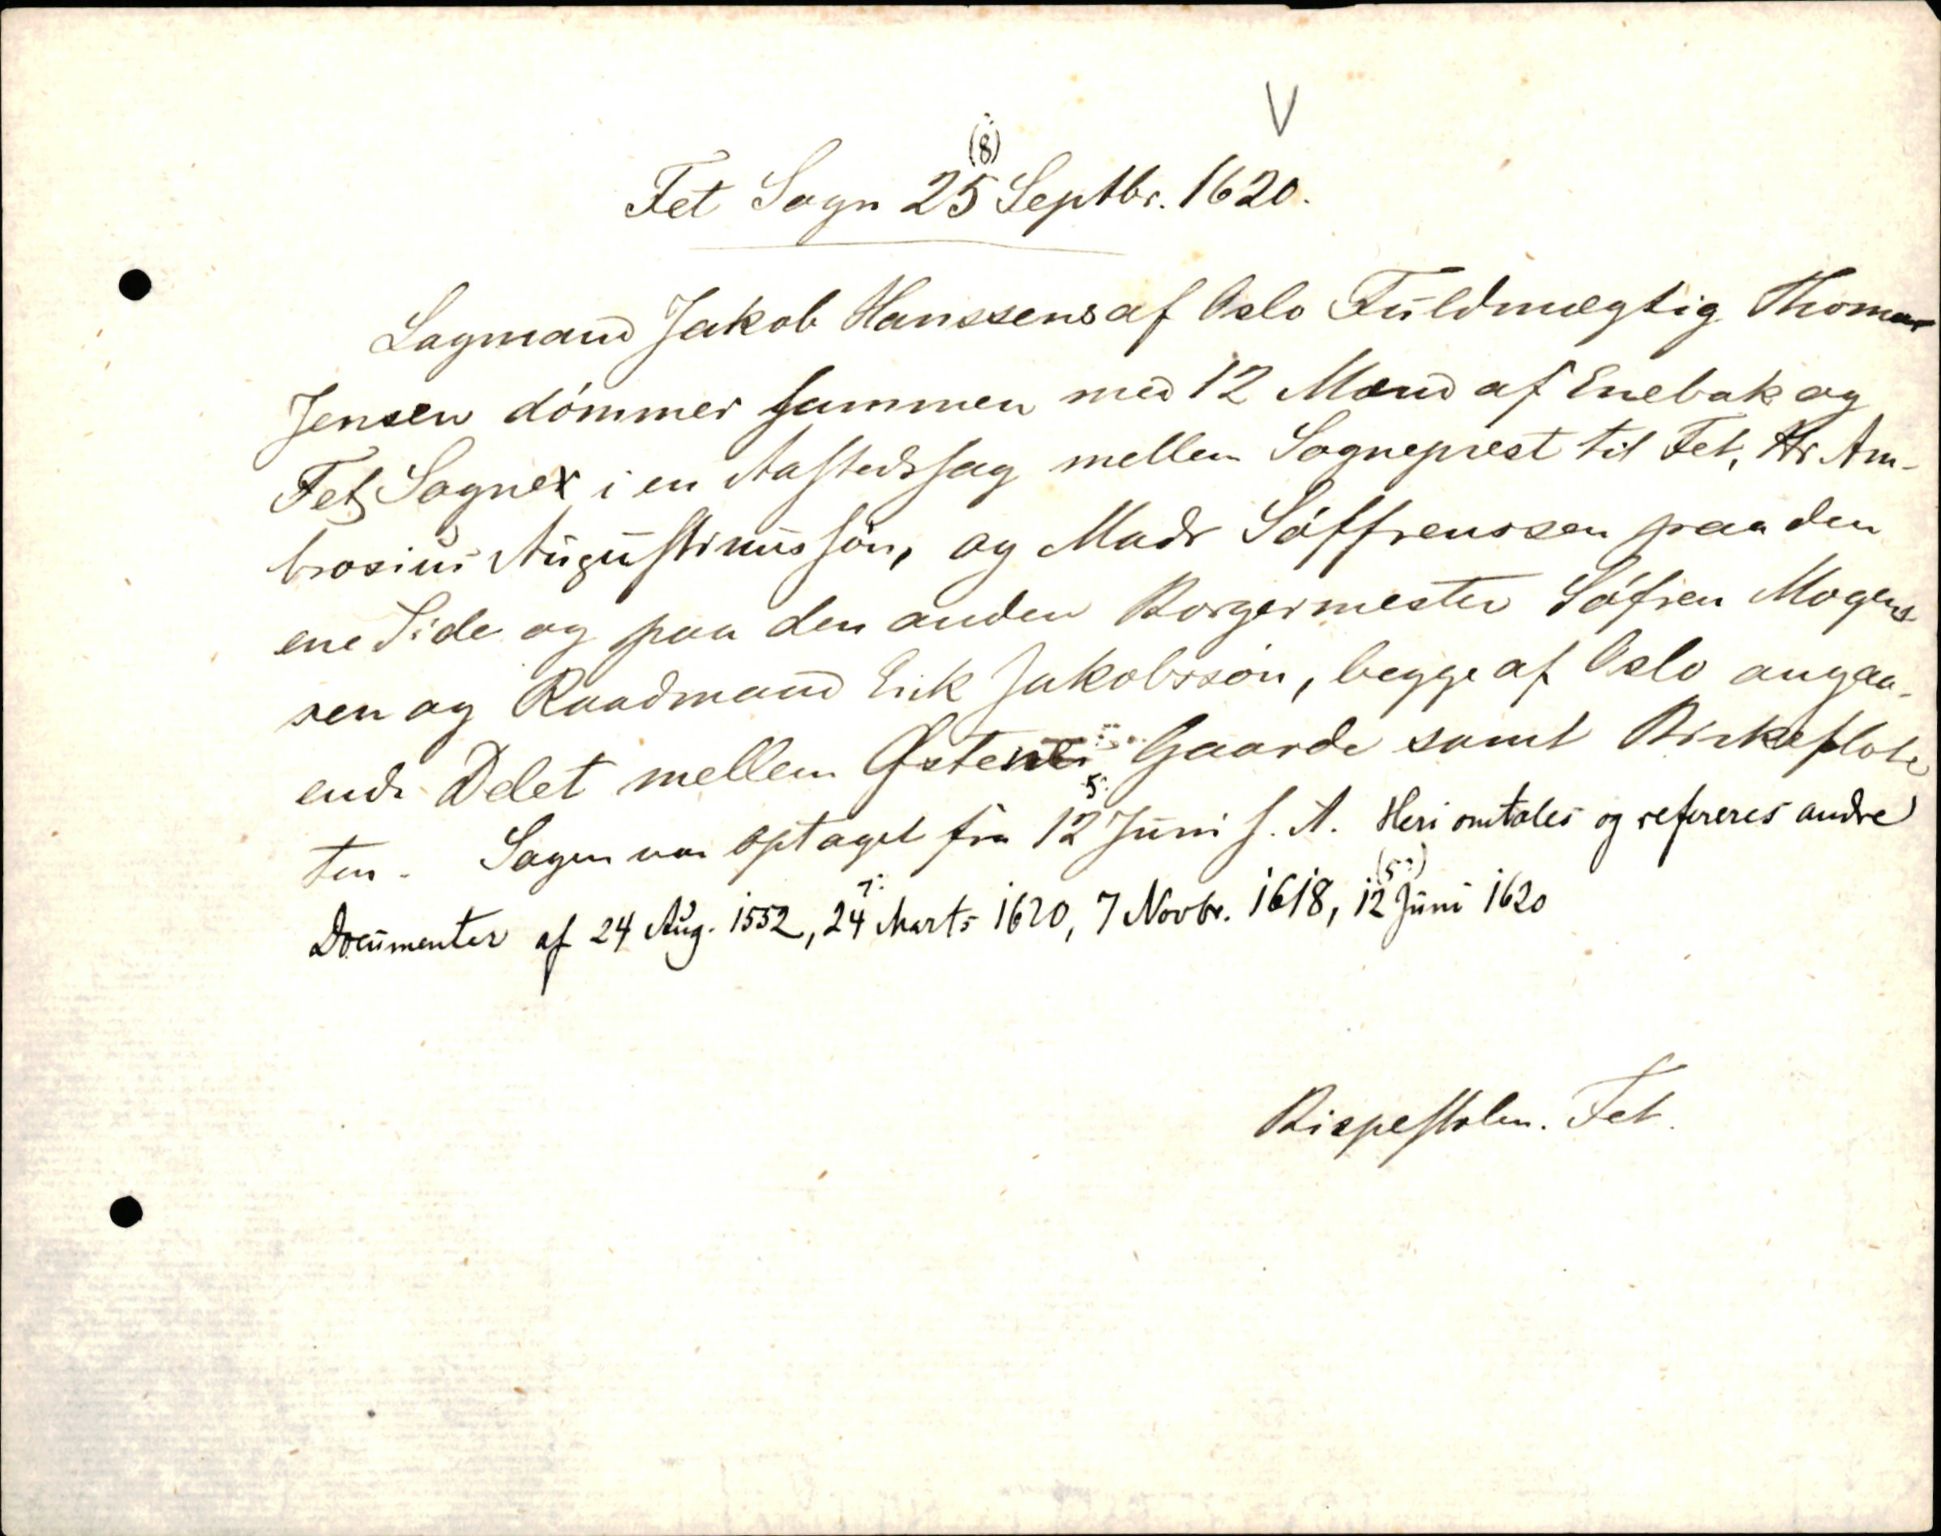 V
(8)
Fet Sogn 25 Septbr. 1620.
Lagmand Jakob Hanssens af Oslo Fuldmægtig Thomas
Jensen dømmer sammen med 12 Mænd af Enebak og
Fets Sogne i en Aastedssag mellem Sogneprest til Fet, Hr Am-
brosius Augustinussøn, og Mads Søffrenssen paa den
ene Side og paa den anden Borgermester Søfren Mogens
sen og Raadmand Erik Jakobssøn, begge af Oslo angaa-
ende Delet mellem Østene Gaarde samt Birkeflote
ten. Sagen var optaget fra 12 5: Juni s. A. Heri omtales og refereres andre
Documenter af 24 Aug. 1552, 24 7: Marts 1620, 7 Novbr. 1618, 12 (5:) Juni 1620
Bispestolen. Fet.